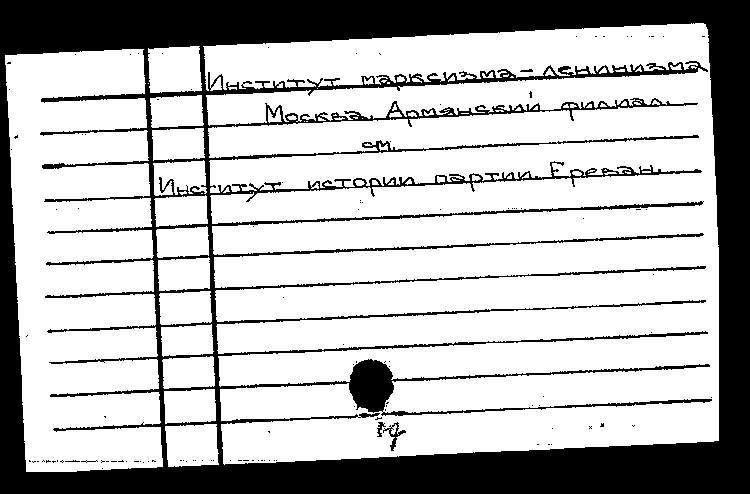 Институт марксизма-ленинизма
Москва. Армянский филиал.
см.
Институт истории партии. Ереван.